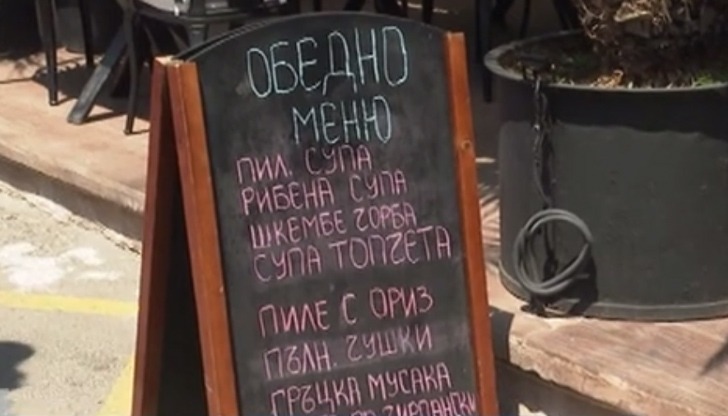 ОБЕДНО
МЕНЮ
ПИЛ. СУПА
РИБЕНА СУПА
ШКЕМБЕ ЧОРБА
СУПА ТОПЧЕТА
ПИЛЕ С ОРИЗ
ПЪЛН. ЧУШКИ
ГРЪЦКА МУСАКА
ЧИРПАНСКИ